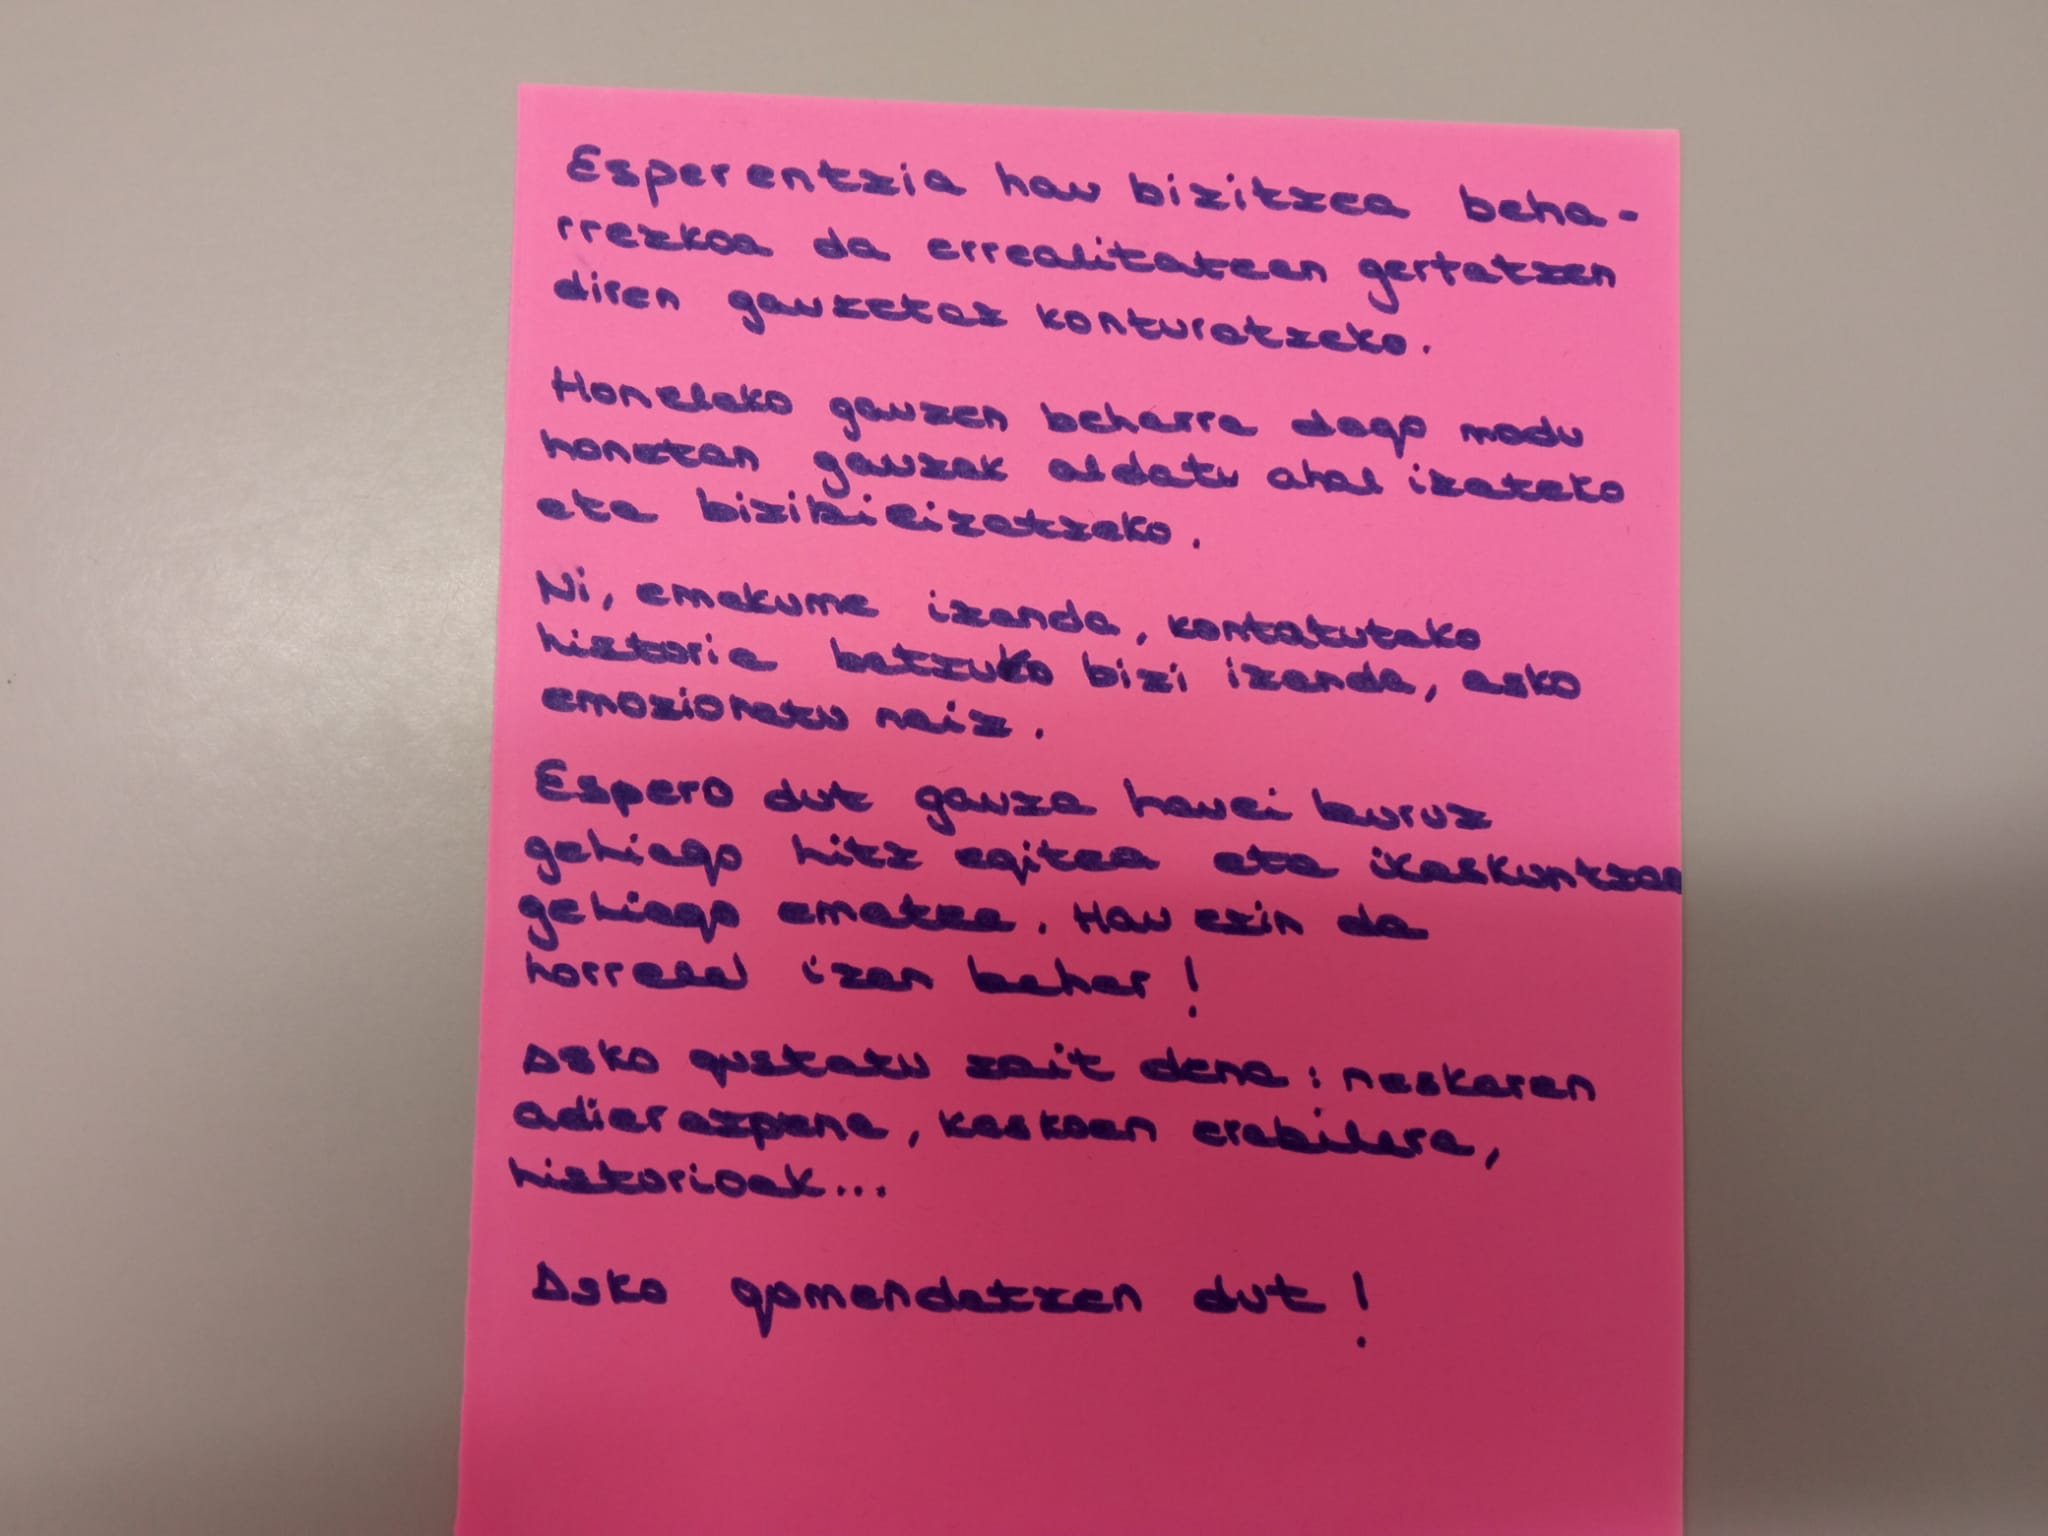 Esperentzia hau bizitzea beha-
rrezkoa da errealitatean gertatzen
diren gauzetaz konturatzeko.
Honelako gauzen beharra dago modu
honetan gauzak aldatu ahal izateko
eta bizikicizatzeko.
Ni, emakume izanda, kontatutako
historia batzuko bizi izanda, asko
emozionatu naiz.
Espero dut gauza hauei buruz
gehiago hitz egitea eta ikaskuntzan
gehiago ematea. Hau ezin da
horrela izan behar!
Asko gustatu zait dena: neskaren
adierazpena, kaskoen erabilera,
historioak...
Asko gomendatzen dut!